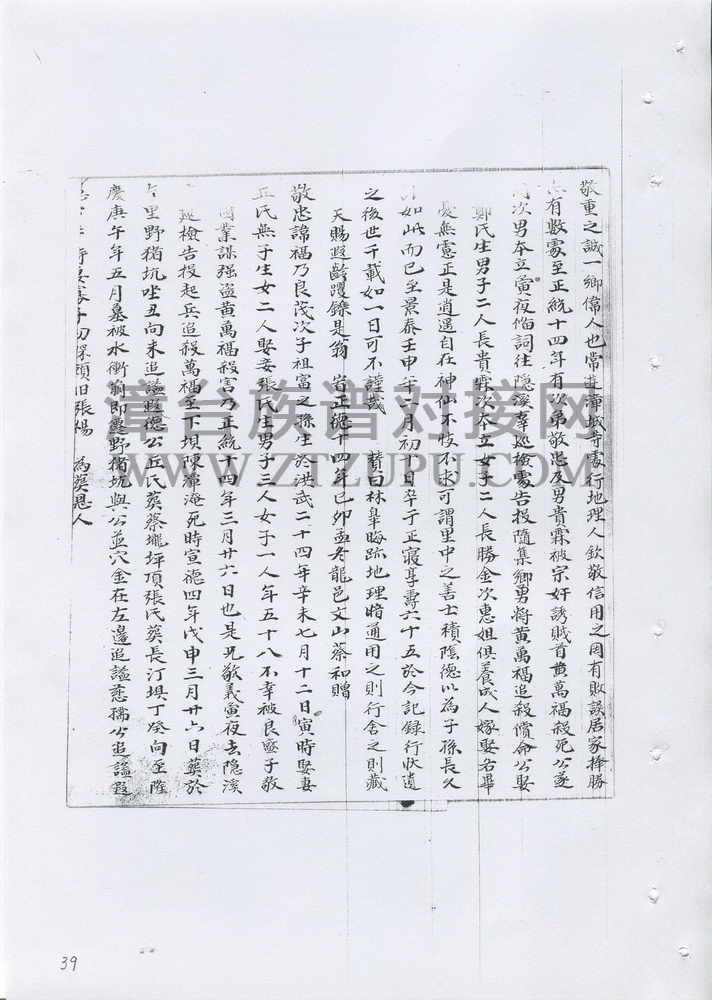 敬重之誠一鄉偉人也常遊漳城寺處行地理人欽敬信用之因有敗誤居家擇勝
有數處至正統十四年有次弟敬忠及男貴霖被宗奸誘賊首黃萬福殺死公遂
次男本立寅夜偹詞往隱溪寨巡檢處告投隨集鄉勇將黃萬福追殺償命公娶
鄭氏生男子二人長貴霖次本立女子二人長勝金次惠姐俱養成人嫁娶各畢
憂無慮正是逍遙自在神仙不忮不求可謂里中之善士積陰德以為子孫長久
如此而已至景泰壬申年二月初十日卒于正寢享壽六十五於今記錄行狀遺
之後世千載如一日可不謹哉 贊曰林皋晦跡地理暗通用之則行舍之則藏
天賜遐齡躍鑠是翁 旹正德十四年已卯孟春龍邑文山蔡和贈
敬忠諱福乃良茂次子祖富之孫生於洪武二十四年辛未七月十二日寅時娶妻
丘氏無子生女二人娶妾張氏生男子三人女子一人年五十八不幸被良盛子敬
業謀强盜黃萬福殺害乃正統十四年三月廿六日也是兄敬義寅夜去隱溪
巡檢告投起兵追殺萬福至下埧陳潭淹死時宣德四年戊申三月廿六日葬於
里野猪坑坐丑向未追謚遐德公丘氏葬蔡壠坪頂張氏葬長汀埧丁癸向至隆
慶庚午年五月墓被水衝崩即遷野猪坑與公並穴金在左邊追謚慈孺公追謚遐
為葬恩人
漳台族谱对接网
WWW.ZTZUPU.COM
39